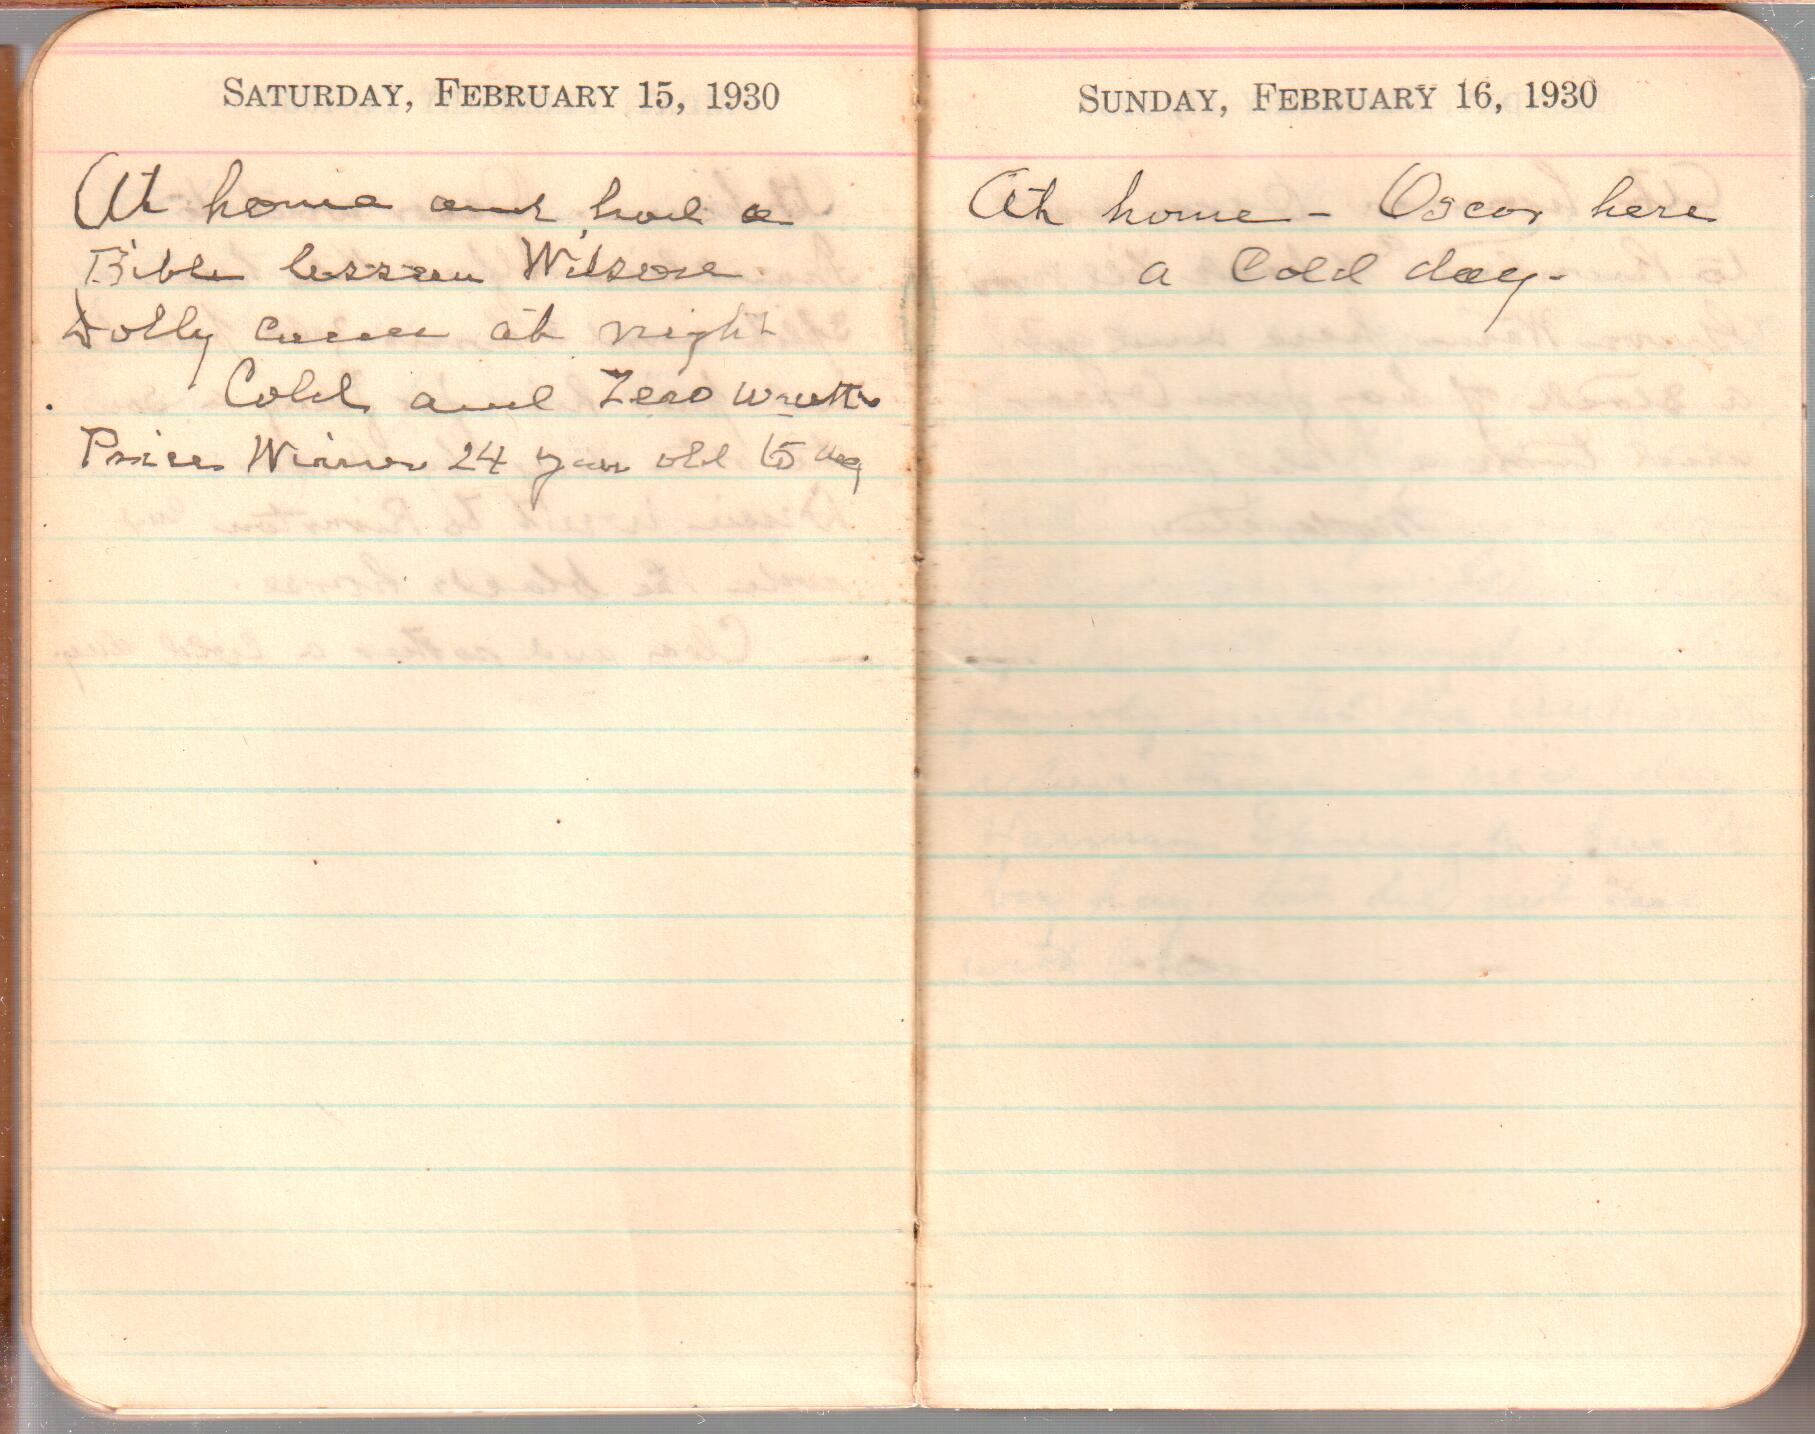 SATURDAY, FEBRUARY 15, 1930
At home and had a
Bible lesson Wilson
Dolly came at night
Cold and Zero
24 year old 15
SUNDAY, FEBRUARY 16, 1930
At home - Oscar here
a Cold day -